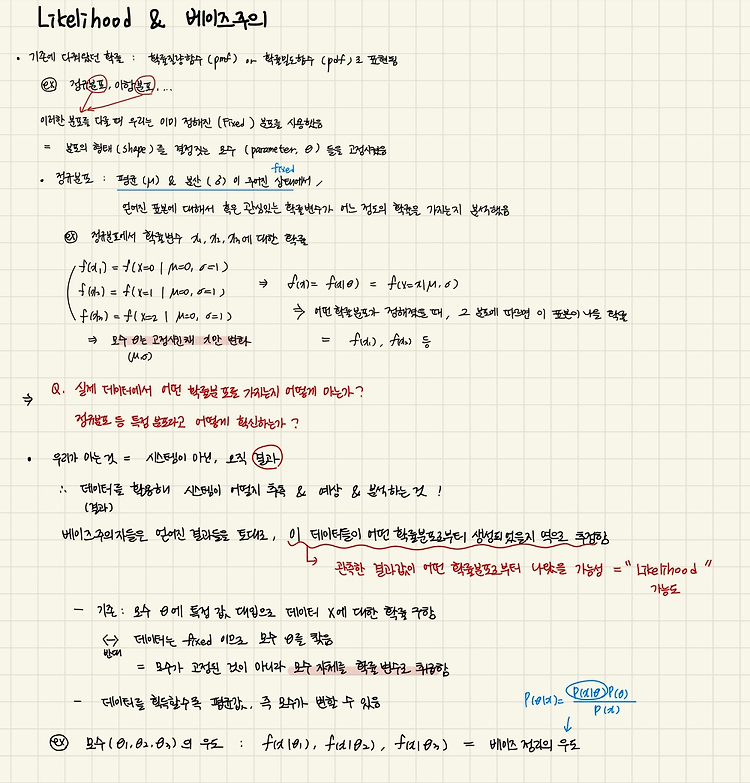 Likelihood & 베이즈주의
• 기존에 다뤄왔던 확률 : 확률질량함수 (pmf) or 확률밀도함수 (pdf)로 표현됨
ex 정규분포, 이항분포, ...
이러한 분포를 다룰 때 우리는 이미 정해진 (Fixed) 분포를 사용했음
= 분포의 형태 (shape)를 결정짓는 모수 (parameter, θ) 등을 고정시켰음
fixed
• 정규분포 : 평균(μ) & 분산(σ)이 주어진 상태에서,
얻어진 표본에 대해서 혹은 관심있는 확률변수가 어느 정도의 확률을 가지는지 분석했음
ex 정규분포에서 확률변수 x₁, x₂, x₃에 대한 확률
f(x₁) = f(X=0 | μ=0, σ=1)
f(x₂) = f(X=1 | μ=0, σ=1) ⇒ f(x) = f(x|θ) = f(X=x|μ, σ)
f(x₃) = f(X=2 | μ=0, σ=1) ⇒ 어떤 확률분포가 정해졌을 때, 그 분포에 따르면 이 표본이 나올 확률
⇒ 모수 θ는 고정시킨채 x만 변화 = f(x₁), f(x₂) 등
(μ,σ)
⇒ Q. 실제 데이터에서 어떤 확률분포를 가지는지 어떻게 아는가?
정규분포 등 특정 분포라고 어떻게 확신하는가?
• 우리가 아는 것 = 시스템이 아닌, 오직 결과
∴ 데이터를 활용해 시스템이 어떨지 추측 & 예상 & 분석하는 것!
(결과)
베이즈주의자들은 얻어진 결과들을 토대로, 이 데이터들이 어떤 확률분포로부터 생성되었을지 역으로 추정함
↳ 관측한 결과값이 어떤 확률분포로부터 나왔을 가능성 = "Likelihood"
가능도
- 기존 : 모수 θ에 특정 값 대입으로 데이터 X에 대한 확률 구함
↔ 데이터는 fixed 이므로 모수 θ를 찾음
반대
= 모수가 고정된 것이 아니라 모수 자체를 확률변수로 취급함
- 데이터를 획득할수록 평균값, 즉 모수가 변할 수 있음
P(θ|x) = P(x|θ)P(θ) / P(x)
ex 모수(θ₁, θ₂, θ₃)의 우도 : f(x|θ₁), f(x|θ₂), f(x|θ₃) = 베이즈 정리의 우도